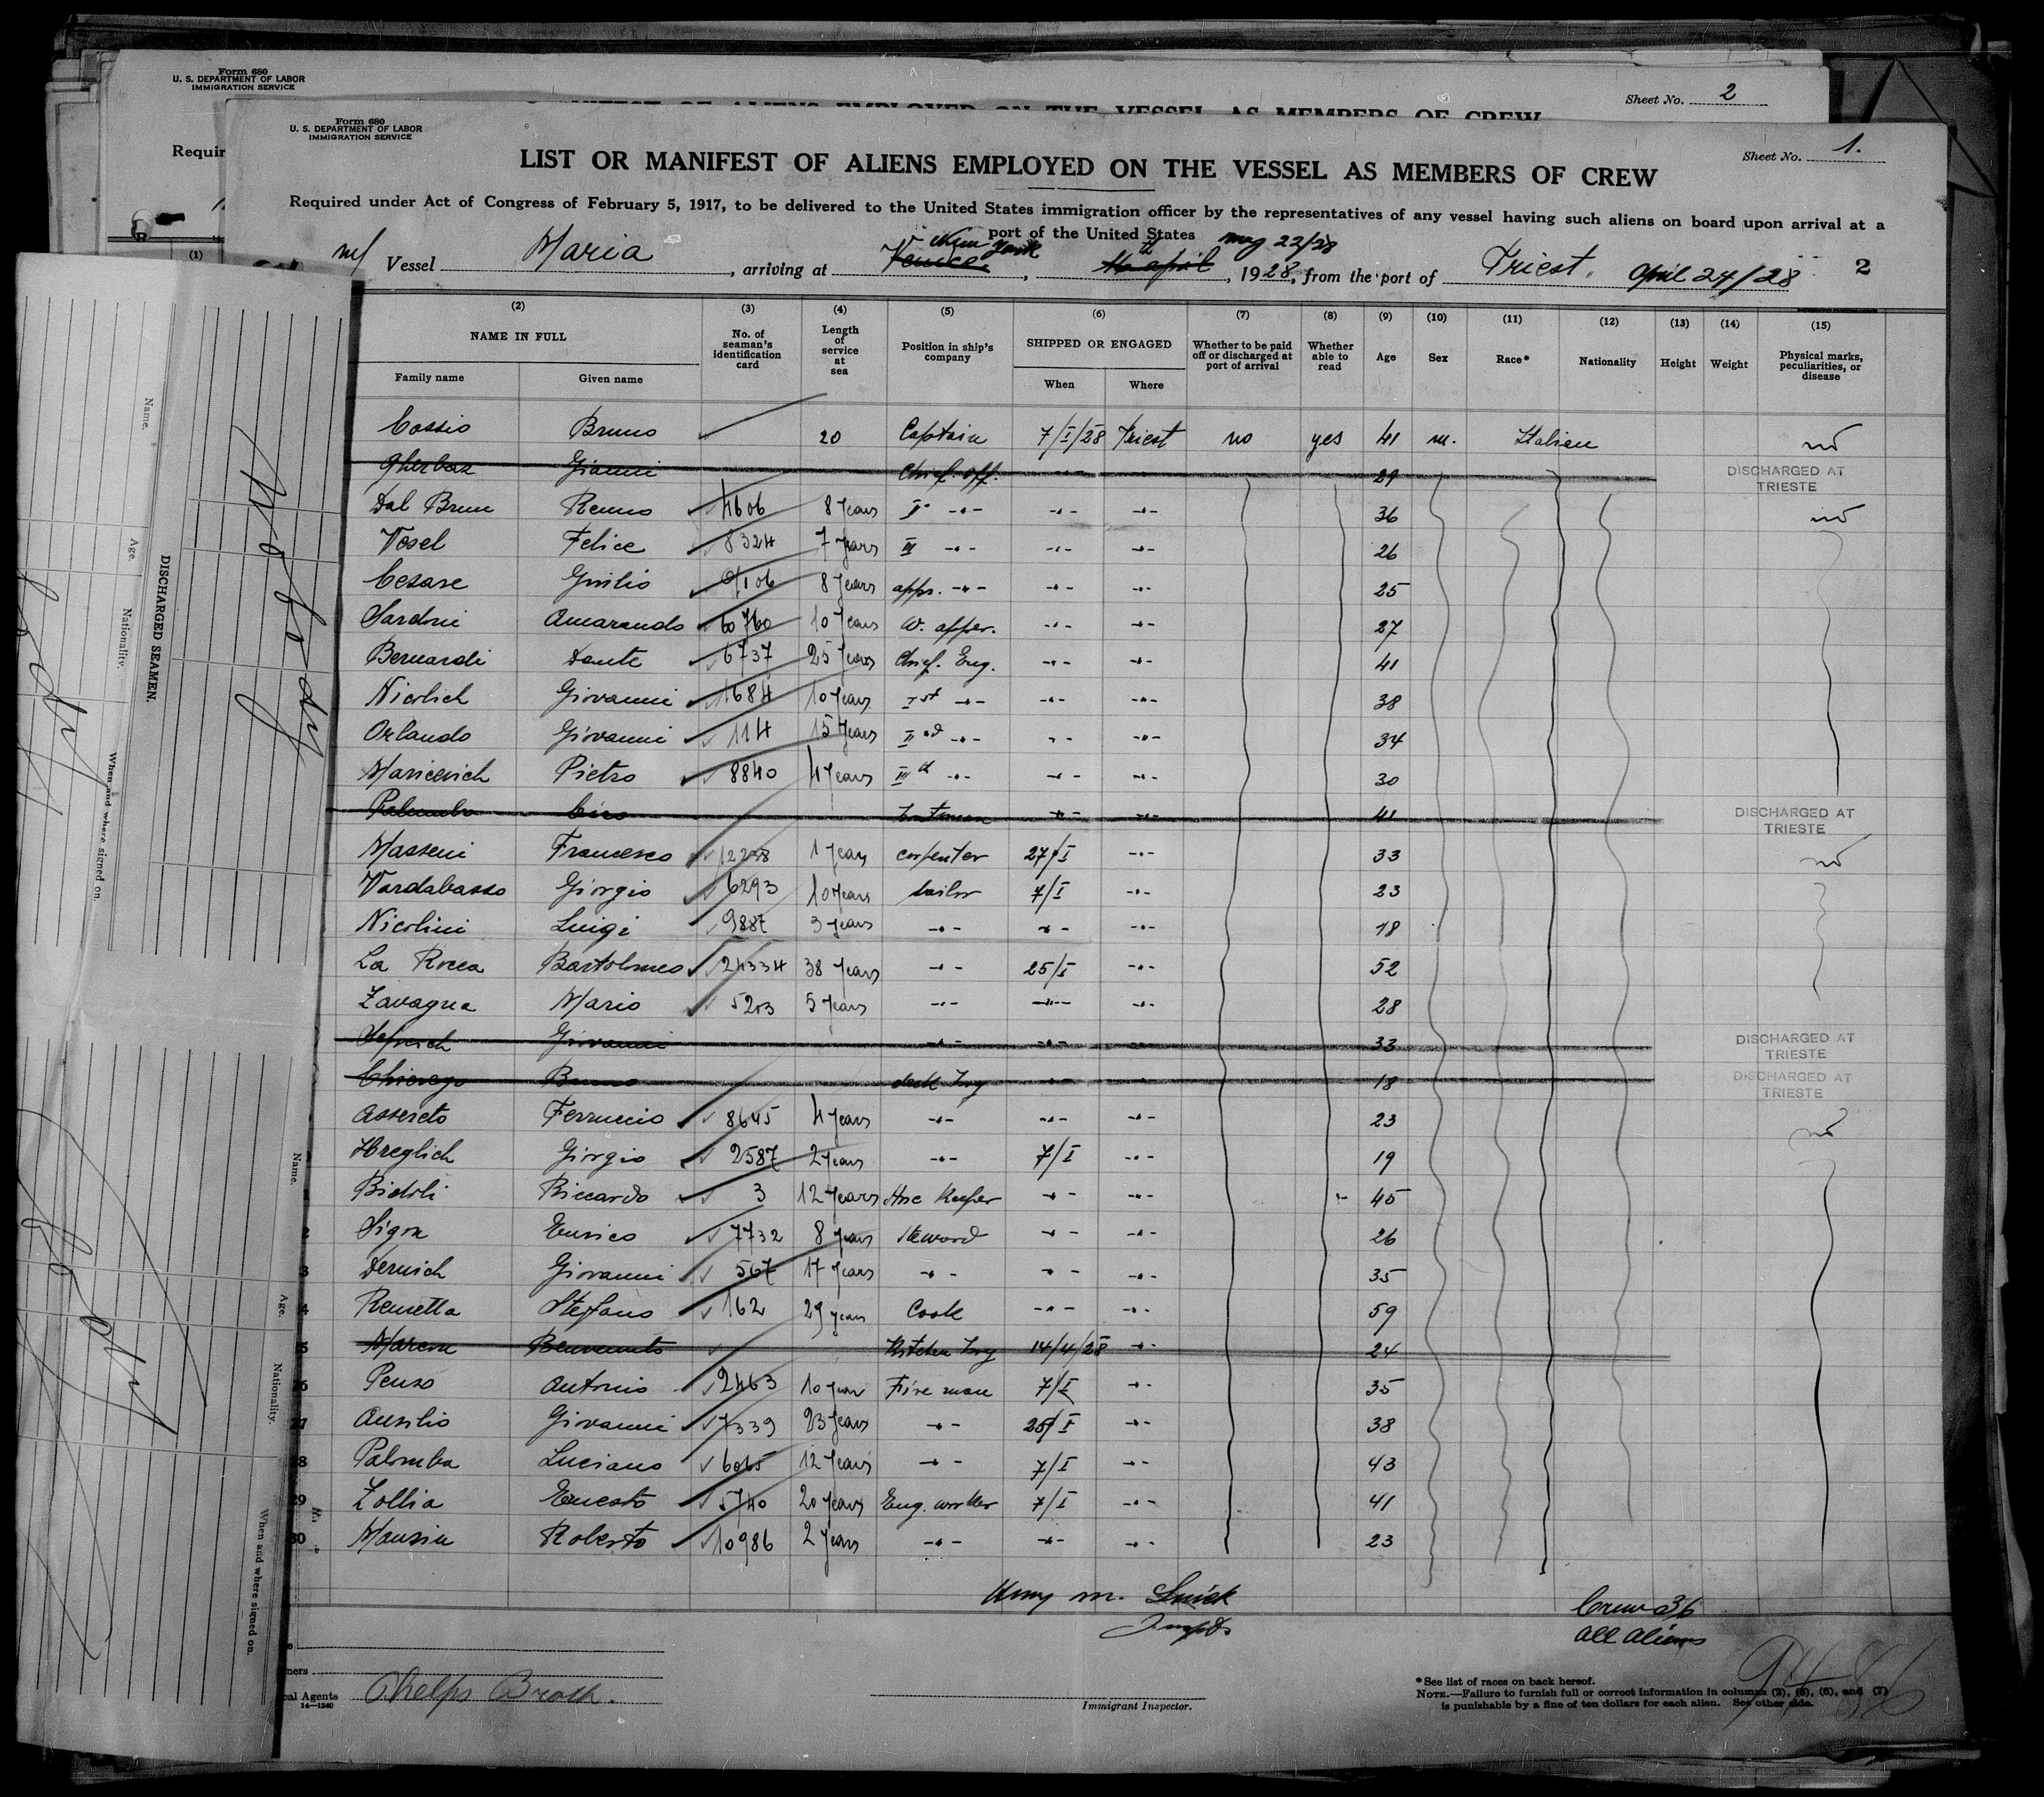 Form 680
U. S. DEPARTMENT OF LABOR
IMMIGRATION SERVICE
Sheet No. 2
Requir
(1)
Form 680
U. S. DEPARTMENT OF LABOR
IMMIGRATION SERVICE
Sheet No. 1.
LIST OR MANIFEST OF ALIENS EMPLOYED ON THE VESSEL AS MEMBERS OF CREW
Required under Act of Congress of February 5, 1917, to be delivered to the United States immigration officer by the representatives of any vessel having such aliens on board upon arrival at a
port of the United States
New York may 22/28
m/ Vessel Maria, arriving at Venice, 16th april, 1928, from the port of Triest. April 24/28 2
(2) (3) (4) (5) (6) (7) (8) (9) (10) (11) (12) (13) (14) (15)
NAME IN FULL No. of seaman's identification card Length of service at sea Position in ship's company SHIPPED OR ENGAGED Whether to be paid off or discharged at port of arrival Whether able to read Age Sex Race* Nationality Height Weight Physical marks, peculiarities, or disease
Family name Given name When Where
Cossio Bruno 20 Captain 7/I/28 Triest no yes 41 m. Italian no
Gherbaz Gianni Chief. off. -"- 29 DISCHARGED AT TRIESTE
Dal Brun Remo 4606 8 Years II° -"- -"- -"- 36 no
Vesel Felice 8324 7 Years III -"- -"- -"- 26
Cesare Giulio 9106 8 Years appr. -"- -"- -"- 25
Sardoni Amarando 60760 10 Years W. apper. -"- -"- 27
Bernardi Dante 6737 25 Years Chief. Eng. -"- -"- 41
Nicolich Giovanni 1684 10 Years Ist -"- -"- -"- 38
Orlando Giovanni 114 15 Years IInd -"- -"- -"- 34
Maricevich Pietro 8840 4 Years IIIth -"- -"- -"- 30
Palumbo Ciro -"- -"- 41 DISCHARGED AT TRIESTE
Masseni Francesco 12238 1 Year carpenter 27/I -"- 33 no
Vardabasso Giorgio 6293 10 Years sailor 7/I -"- 23
Nicolini Luigi 9887 3 Years -"- -"- -"- 18
La Rocca Bartolomeo 24334 38 Years -"- 25/I -"- 52
Zavagna Mario 5203 5 Years -"- -"- -"- 28
Giovanni -"- -"- -"- 33 DISCHARGED AT TRIESTE
Chierego Bruno deck boy -"- -"- 18 DISCHARGED AT TRIESTE
Assereto Ferruccio 8645 4 Years -"- -"- -"- 23 no
Hreglich Giorgio 2587 2 Years -"- 7/I -"- 19
Bidoli Riccardo 3 12 Years Keeper -"- -"- 45
Sigon Enrico 7732 8 Years Steward -"- -"- 26
Dernich Giovanni 567 17 Years -"- -"- -"- 35
Remetta Stefano 162 29 years Cook -"- -"- 59
Benvenuto Kitchen boy 14/4/28 -"- 24
Penso Antonio 2463 10 Years Fire man 7/I -"- 35
27 Ausilio Giovanni 7339 23 Years -"- 25/I -"- 38
Palomba Luciano 6065 12 Years -"- 7/I -"- 43
29 Zollia Ernesto 5740 20 Years Eng. worker 7/I -"- 41
30 Mansin Roberto 10986 2 Years -"- -"- -"- 23
Crew 36
all aliens
Phelps Broth.
14—1240
Immigrant Inspector.
*See list of races on back hereof.
NOTE.—Failure to furnish full or correct information in columns (2), (5), (6), and (7)
is punishable by a fine of ten dollars for each alien. See other side.
DISCHARGED SEAMEN.
Name. Age. Nationality. When and where signed on.
Nobody
Name. Age. Nationality. When and where signed on.